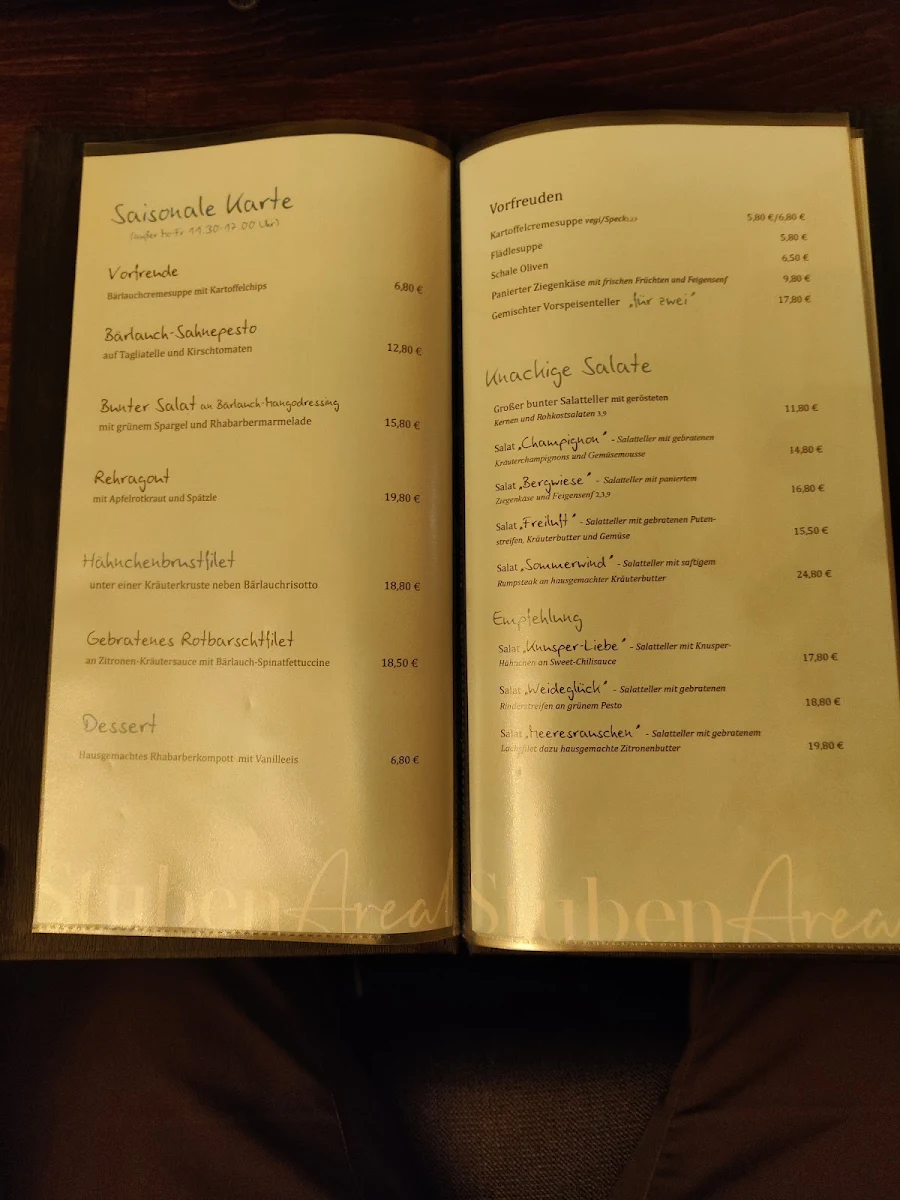 Saisonale Karte
(außer Mo-Fr 11.30-17.00 Uhr)
Vorfreude
Bärlauchcremesuppe mit Kartoffelchips 6,80 €
Bärlauch-Sahnepesto
auf Tagliatelle und Kirschtomaten 12,80 €
Bunter Salat an Bärlauch-Mangodressing
mit grünem Spargel und Rhabarbermarmelade 15,80 €
Rehragout
mit Apfelrotkraut und Spätzle 19,80 €
Hähnchenbrustfilet
unter einer Kräuterkruste neben Bärlauchrisotto 18,80 €
Gebratenes Rotbarschtfilet
an Zitronen-Kräutersauce mit Bärlauch-Spinatfettuccine 18,50 €
Dessert
Hausgemachtes Rhabarberkompott mit Vanilleeis 6,80 €
StubenAreal
Vorfreuden
Kartoffelcremesuppe vegi/Speck 5,80 €/6,80 €
Flädlesuppe 5,80 €
Schale Oliven 6,50 €
Panierter Ziegenkäse mit frischen Früchten und Feigensenf 9,80 €
Gemischter Vorspeisenteller „für zwei“ 17,80 €
Knackige Salate
Großer bunter Salatteller mit gerösteten
Kernen und Rohkostsalaten 3,9 11,80 €
Salat „Champignon“ - Salatteller mit gebratenen
Kräuterchampignons und Gemüsemousse 14,80 €
Salat „Bergwiese“ - Salatteller mit paniertem
Ziegenkäse und Feigensenf 2,3,9 16,80 €
Salat „Freiluft“ - Salatteller mit gebratenen Puten-
streifen, Kräuterbutter und Gemüse 15,50 €
Salat „Sommerwind“ - Salatteller mit saftigem
Rumpsteak an hausgemachter Kräuterbutter 24,80 €
Empfehlung
Salat „Knusper-Liebe“ - Salatteller mit Knusper-
Hähnchen an Sweet-Chilisauce 17,80 €
Salat „Weideglück“ - Salatteller mit gebratenen
Rinderstreifen an grünem Pesto 18,80 €
Salat „Meeresrauschen“ - Salatteller mit gebratenem
Lachsfilet dazu hausgemachte Zitronenbutter 19,80 €
StubenArea